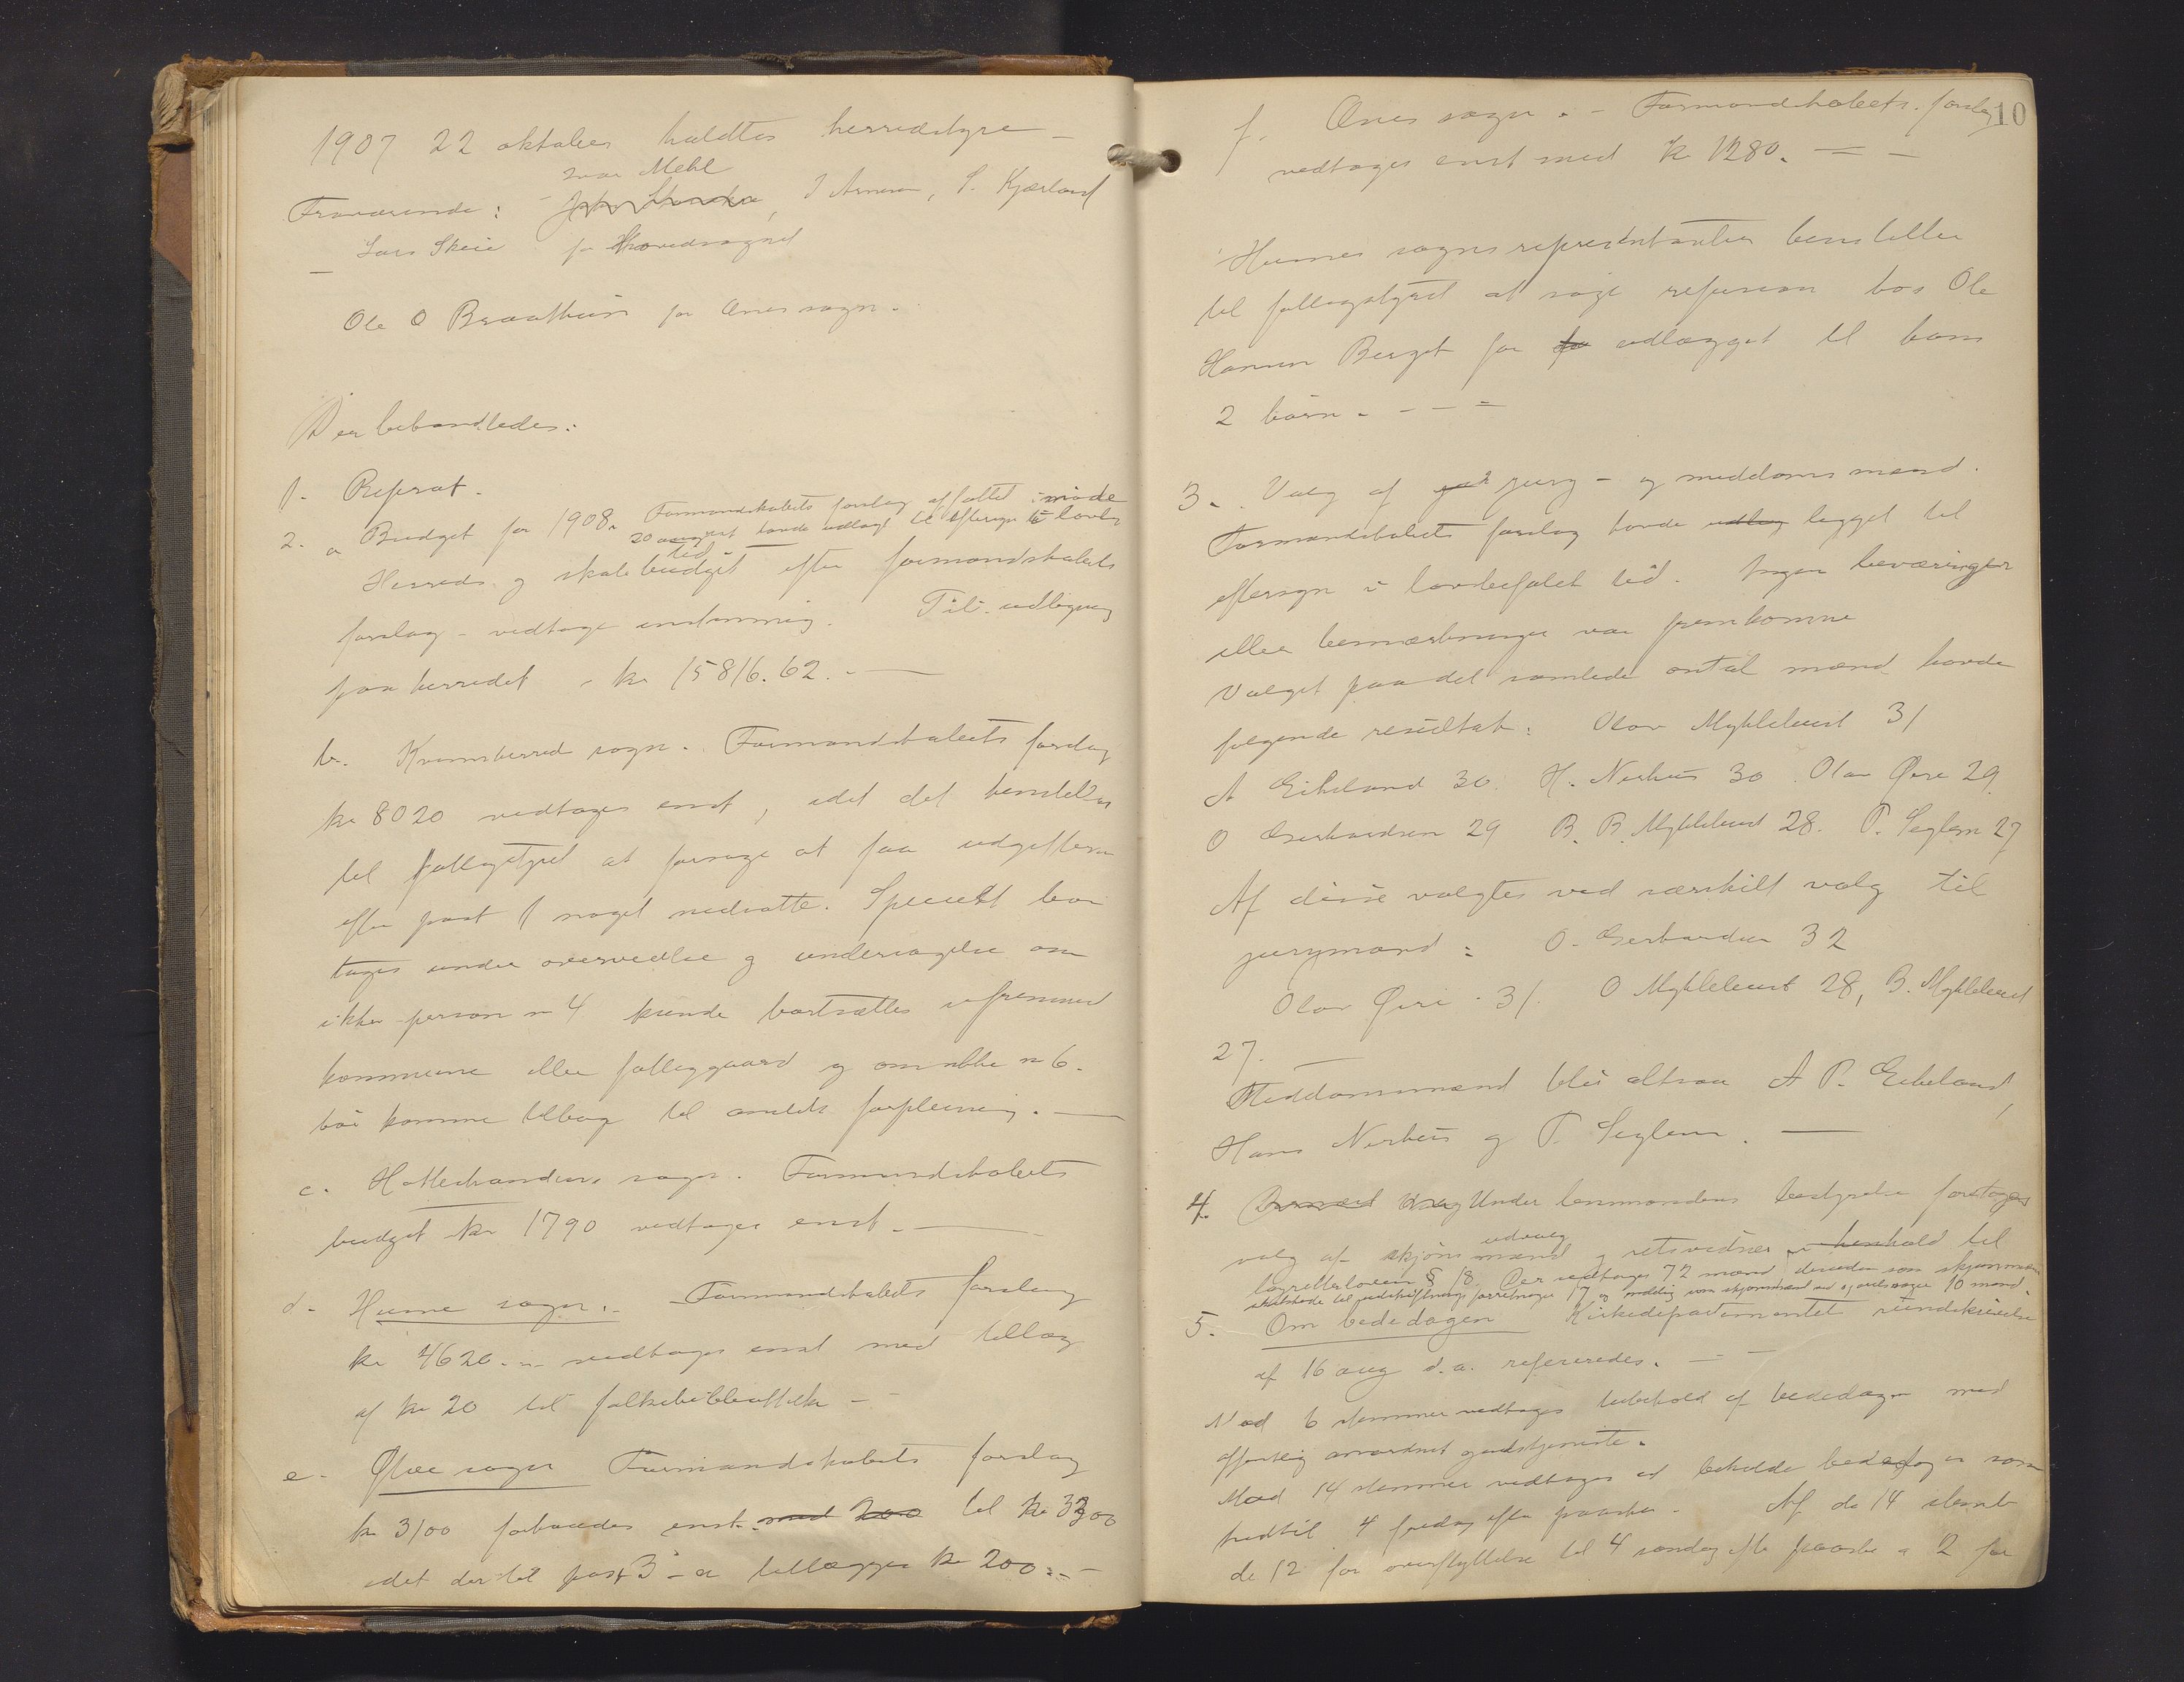 1907 22 oktober holdtes herredstyre –
Ivar Mehl
Fraværende: J Arnesen, P. Kjærland
– Lars Skeie for Hovedsognet
Ole O Braathun for Ænes sogn.
Der behandledes:
1. Referat.
2. a Budget for 1908. Formandskabets forslag affattet i møde
20 august havde udlagt til eftersyn i lovlig
tid
Herreds og skolebudget efter formandskabets
forslag – vedtoges enstemmig. Til udligning
paa herredet – kr 15816.62. –
b. Kvinnherred sogn. Formandskabets forslag
kr 8020 vedtages enst, idet det henstilles
til fattigstyret at forsøge at faa udgifterne
efter post 1 noget nedsatte. Specielt bør
tages under overveielse og undersøgelse om
ikke person n 4 kunde bortsættes i fremmed
kommune eller fattiggaard og om ikke n 6.
bør komme tilbage til amtets forpleining. –
c. Hatlestrandens sogn. Formandskabets
budget kr 1790 vedtages enst. –
d. Husnes sogn. – Formandskabets forslag
kr 4620. – vedtages enst med tillæg
af kr 20 til folkebibliothek –
e. Ølve sogn Formandskabets forslag
kr 3100 forhøiedes enst. med 200 til kr 3300
idet der til post 3 – a tillægges kr 200. –
10
f. Ænes sogn. – Formandskabets forslag
vedtoges enst med kr 1280. –
Husnes sogns repræsentanter henstiller
til fattigstyret at søge refusion hos Ole
Hansen Berget for udlægget til hans
2 børn. – – –
3. Valg af jury – og meddomsmænd.
Formandskabets forslag havde udlag ligget til
eftersyn i lovbefalet tid. Ingen besværinger
eller bemærkninger var fremkomne
Valget paa det samlede antal mænd havde
følgende resultat: Olav Myklebust 31
A Eikeland 30. H. Nerhus 30. Olav Øvre 29.
O Gerhardsen 29 B. B. Myklebust 28. T. Seglem 27
Af disse valgtes ved særskilt valg til
jurymænd: O. Gerhardsen 32
Olav Øvre 31. O Myklebust 28, B. Myklebust
27. –
Meddomsmænd blir altsaa A P. Eikeland,
Hans Nerhus og T. Seglem. –
4. Under lensmandens bestyrelse foretages
udvalg
valg af skjønsmænd og retsvidner i henhold til
lagretteloven § 18. Der vedtages 72 mænd desuden som skjønsmænd
udskiftningsforretninger 17 og som skjønsmænd 10 mænd.
5. Om bededagen Kirkedepartementet rundskrivelse
af 16 aug d.a. refereredes. – –
Mod 6 stemmer vedtages bibehold af bededagen med
offentlig anordnet gudstjeneste.
Mod 14 stemmer vedtages at beholde bededagen som
hidtil 4 fredag efter paaske. Af de 14 stemte
de 12 for overflyttelse til 4 søndag efter paaske og 2 for